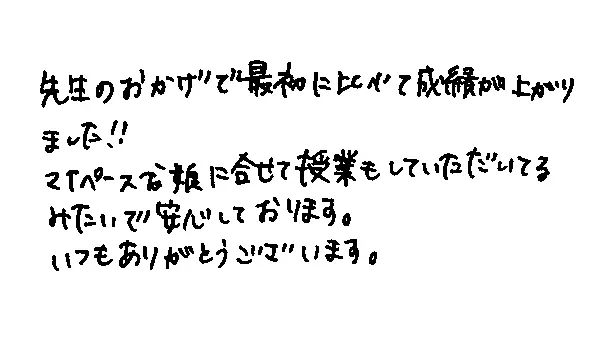 先生のおかげで最初に比べて成績が上がり
ました!!
マイペースな娘に合せて授業もしていただいてる
みたいで安心しております。
いつもありがとうございます。